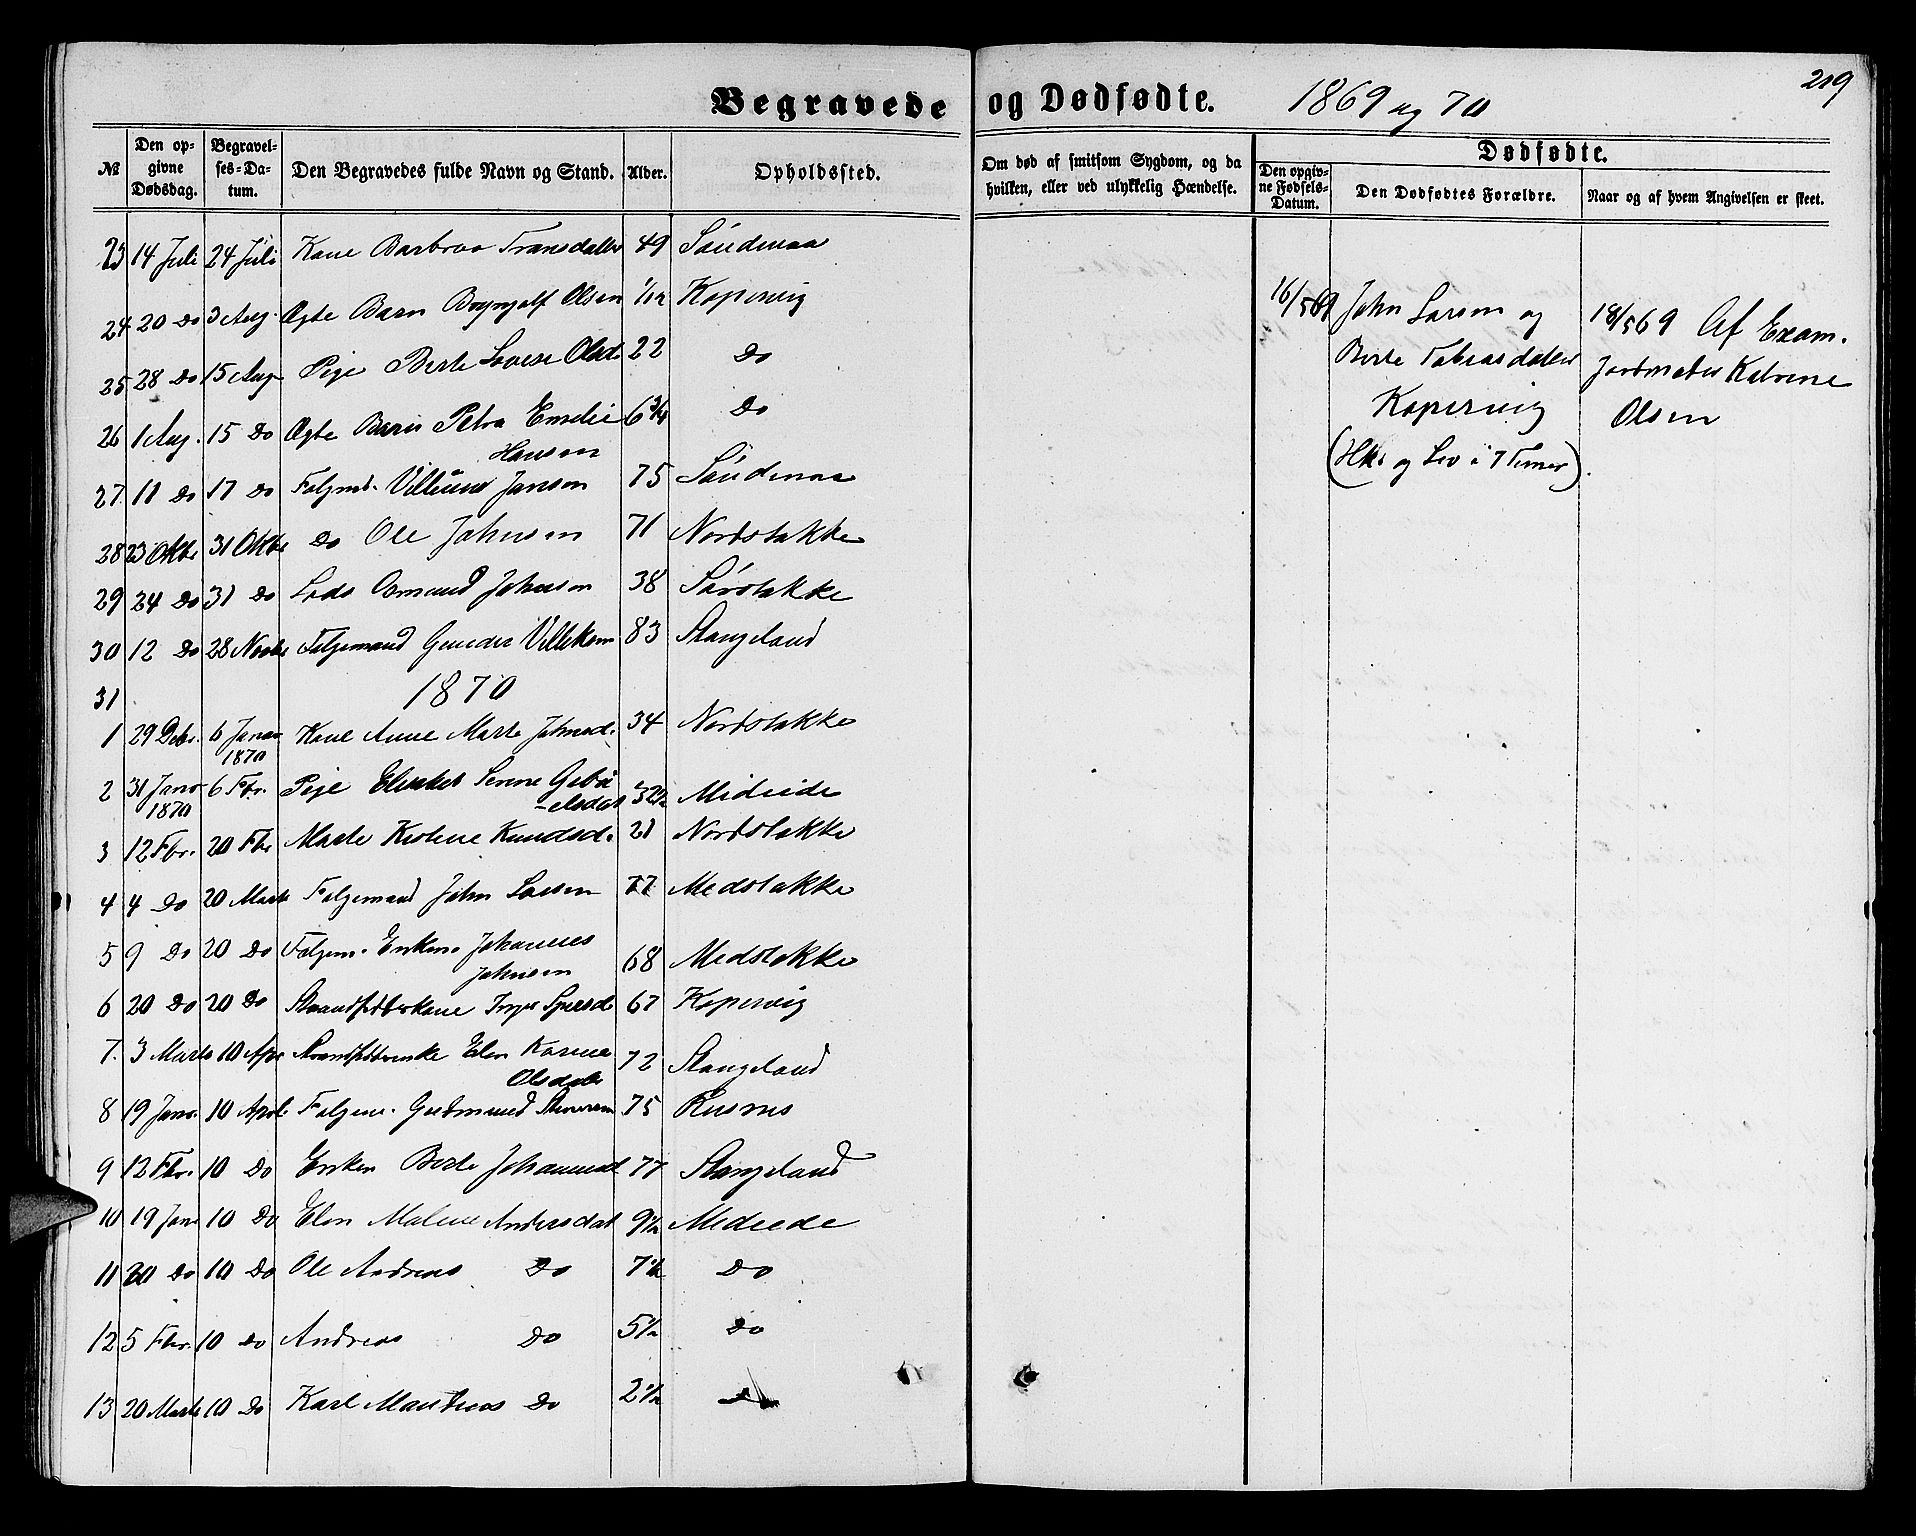 219
Begravede og Dødfødte. 1869 og 70
№ Den opgivne Dødsdag. Begravelses-Datum. Den Begravedes fulde Navn og Stand. Alder. Opholdssted. Om død af smitsom Sygdom, og da hvilken, eller ved ulykkelig Hændelse. Dødfødte.
Den opgivne Fødsels-Datum. Den Dødfødtes Forældre. Naar og af hvem Angivelsen er skeet.
23 14 Juli 24 Juli Kone Barbroe 49 Søndenaa
24 20 Do 3 Aug. Ægte Barn Brynjolf Olsen Kopervig
25 28 Do 15 Aug Pige Berte Lovise Olsd 22 Do
26 1 Aug. 15 Do Ægte Barn Petra Emelie 6 3/4 Do
Hansen
27 11 Do 17 Do Folgmd. Villum Jansen 75 Søndenaa
28 23 Oktbr 31 Oktbr Do Ole Johnsen 71 Nordstokke
29 24 Do 31 Do Lods Osmund Johnsen 38 Sørstokke
30 12 Do 28 Novbr Folgemand Gunder Villeksen 83 Stangeland
31 1870
1 29 Debr. 6 Januar 1870 Kone Anne Marte Johnsd. 34 Nordstokke
2 31 Janr 1870 6 Fbr. Pige Elisabet Serine Gabri
-elsdat 32 1/2 Mideide
3 12 Fbr. 20 Fbr Marte Kristene Knudsd. 21 Nordstokke
4 4 Do 20 Marts Folgemand John Larsen 77 Medstokke
5 9 Do 20 Do Folgem. Enkem. Johannes
Johnsen 68 Medstokke
6 20 Do 20 Do Strandsidderkone Inger 67 Kopervig
7. 3 Marts 10 Apr Strandsidderenke Elen Karine
Olsdatr 72 Stangeland
8 19 Janr. 10 Aprl Folgem. Gudmund 75
9 12 Fbr. 10 Do Enken Berte Johannesd 77 Stangeland
10 19 Janr 10 Do Elen Malene Andersdat 9 1/2 Medeide
11 20 Do 10 Do Ole Andreas Do 7 1/2 Do
12 5 Fbr. 10 Do Andreas Do 5 1/2 Do
13 20 Marts 10 Do Karl Mantheus Do 2 1/2 Do
16/5 69 John Larsen og
Berte Tobiasdatter
Kopervig
(Hk. og Lev i 7 Timer).
18/5 69 Af Exam.
Jordmoder Katrine
Olsen